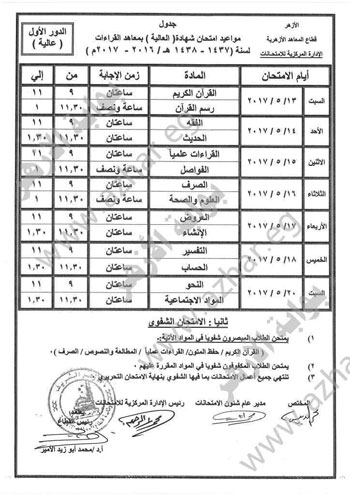 الأزهر
قطاع المعاهد الأزهرية
الإدارة المركزية للامتحانات
جدول
مواعيد امتحان شهادة (العالية) بمعاهد القراءات
لسنة (١٤٣٧ - ١٤٣٨ هـ / ٢٠١٦ - ٢٠١٧ م)
الدور الأول
( عالية )
أيام الامتحان المادة زمن الإجابة من إلي
السبت ١٣ / ٥ / ٢٠١٧ القرآن الكريم ساعتان ٩ ١١
رسم القرآن ساعة ونصف ١١,٣٠ ١
الأحد ١٤ / ٥ / ٢٠١٧ الفقه ساعتان ٩ ١١
الحديث ساعتان ١١,٣٠ ١,٣٠
الاثنين ١٥ / ٥ / ٢٠١٧ القراءات علمياً ساعتان ٩ ١١
الفواصل ساعة ونصف ١١,٣٠ ١
الثلاثاء ١٦ / ٥ / ٢٠١٧ الصرف ساعتان ٩ ١١
العلوم والصحة ساعة ونصف ١١,٣٠ ١
الأربعاء ١٧ / ٥ / ٢٠١٧ العروض ساعتان ٩ ١١
الإنشاء ساعتان ١١,٣٠ ١,٣٠
الخميس ١٨ / ٥ / ٢٠١٧ التفسير ساعتان ٩ ١١
الحساب ساعتان ١١,٣٠ ١,٣٠
السبت ٢٠ / ٥ / ٢٠١٧ النحو ساعتان ٩ ١١
المواد الاجتماعية ساعتان ١١,٣٠ ١,٣٠
ثانيا : الامتحان الشفوي
١) يمتحن الطلاب المبصرون شفويا في المواد الآتية.
( القرآن الكريم / حفظ المتون / القراءات عملياً / المطالعة والنصوص / الصرف )
٢) يمتحن الطلاب المكفوفون شفويا في المواد المقررة عليهم
٣) تنتهي جميع أعمال الامتحانات بما فيها الشفوي بنهاية الامتحان التحريري
مدير عام شئون الامتحانات
رئيس الإدارة المركزية للامتحانات
أ.د/ محمد أبو زيد الأمير
بوابة الأزهر
www.azhar.eg